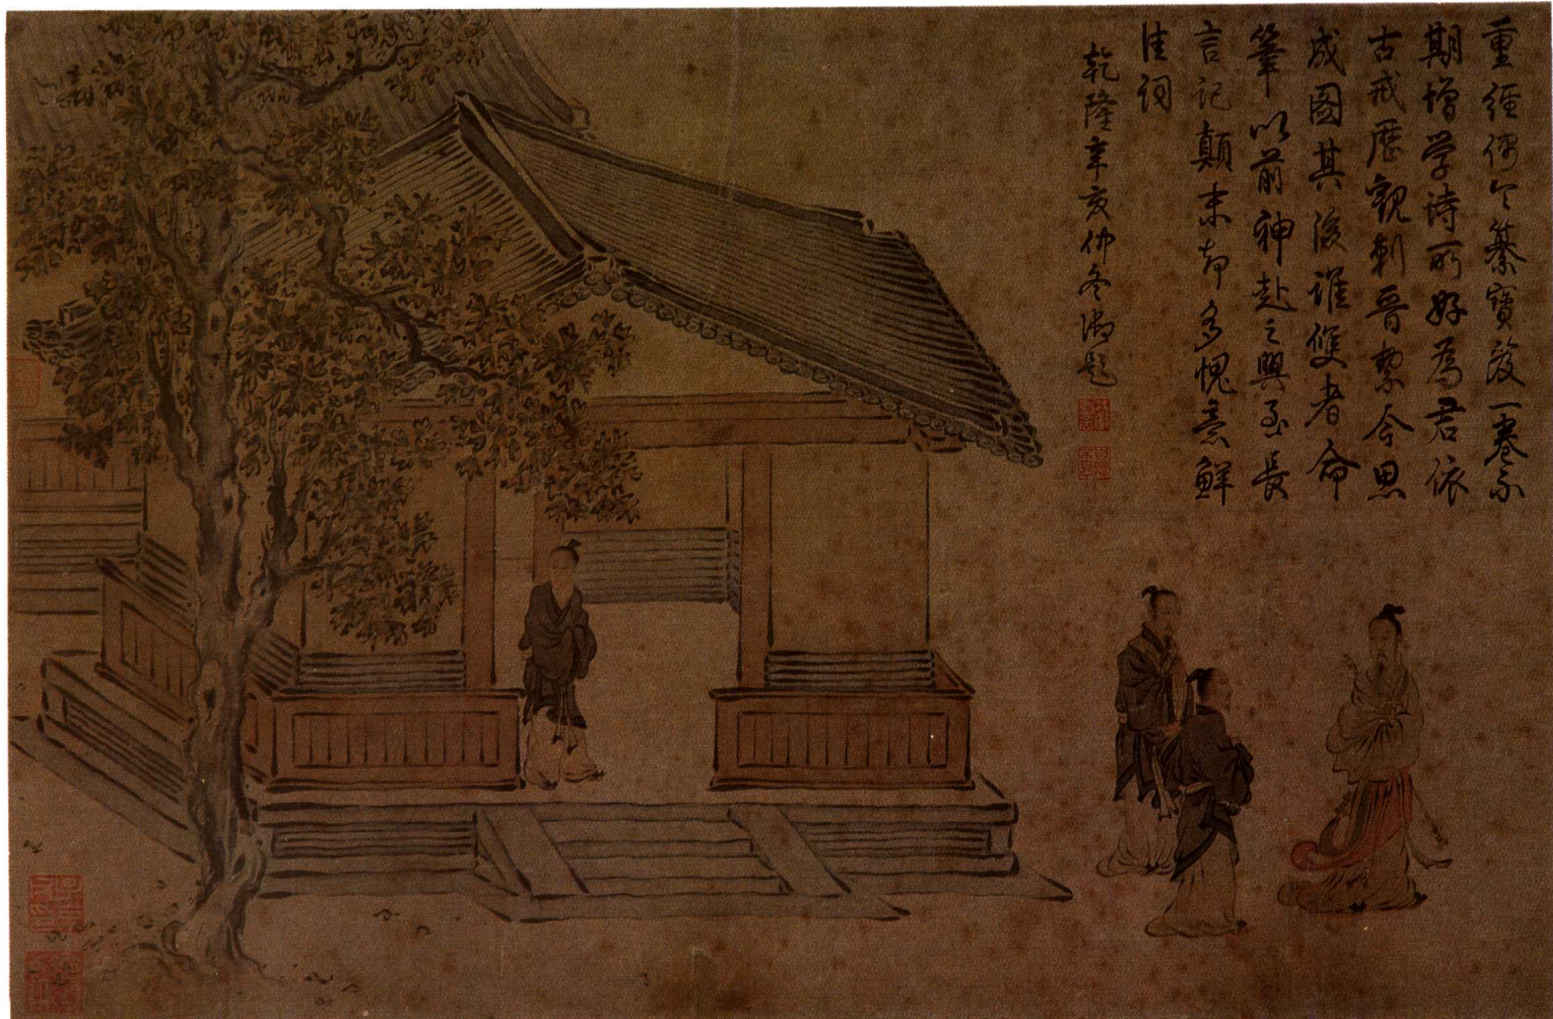 重經偶令纂寶芨一卷示
期增學诗所好為君依
古戒歷觀刺晋幣今思
成圖其後誰雙者命
筆以前神赴之興至長
言記顛末却多愧意鮮
佳词
乾隆辛亥仲冬御题